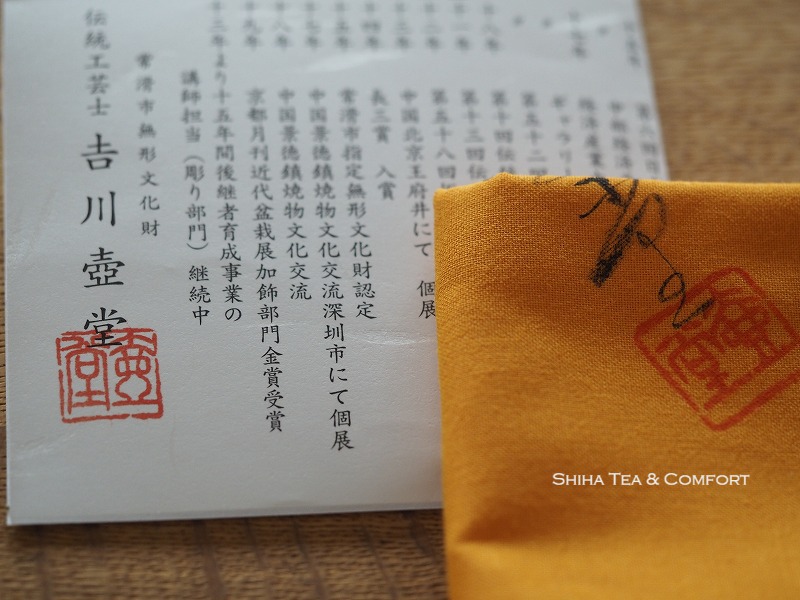 第八回日
中部経済
経済産業
ギャラリー
第五十二回
第十回伝
第十三回伝
第五十八回
中国北京王府井にて 個展
長三賞 入賞
常滑市指定無形文化財認定
中国景徳鎮焼物文化交流深圳市にて個展
中国景徳鎮焼物文化交流
京都月刊近代盆栽展加飾部門金賞受賞
年より十五年間後継者育成事業の
講師担当(彫り部門)継続中
常滑市無形文化財
伝統工芸士 𠮷川壺堂
壺堂
SHIHA TEA & COMFORT